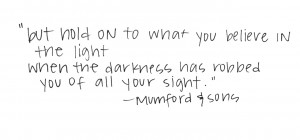 "but hold ON to what you believe IN
the light
when the darkness has robbed
you of all your sight."
—Mumford & sons